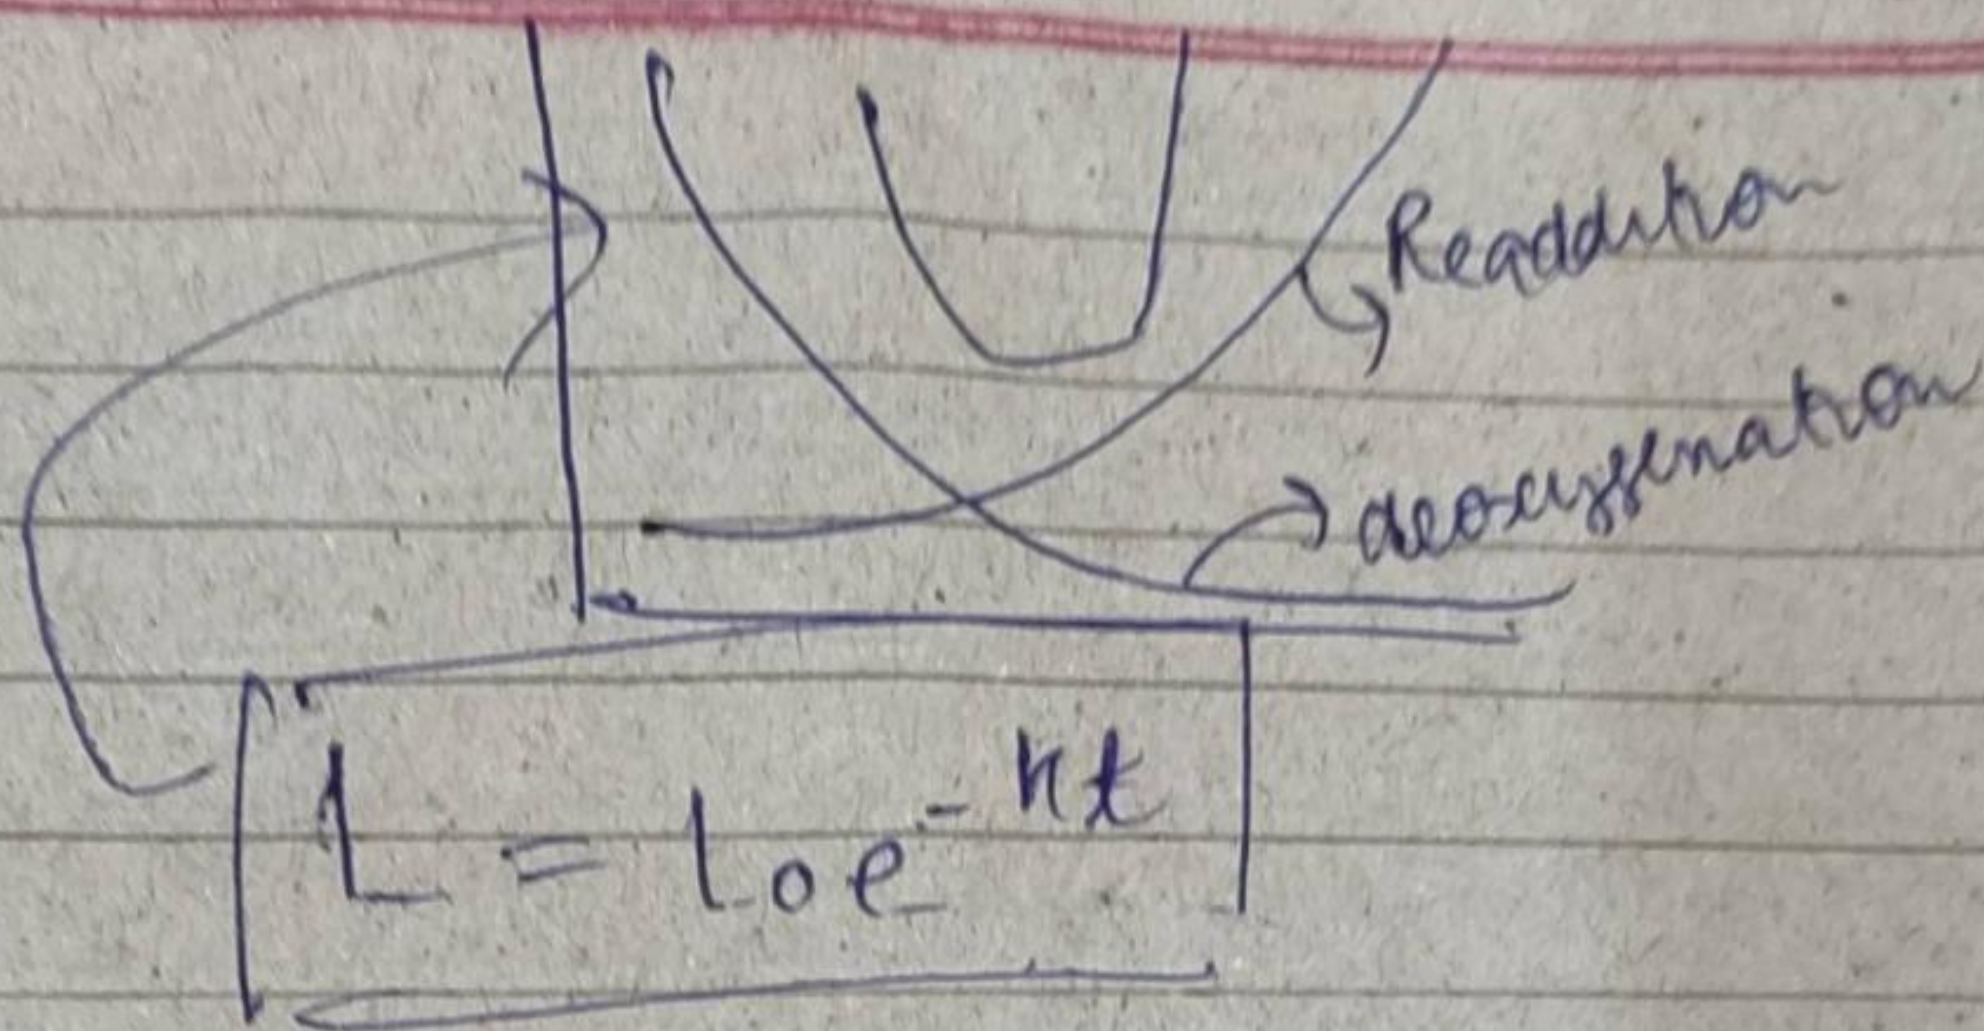 Readdition
deoxygenation
L = Loe^-kt